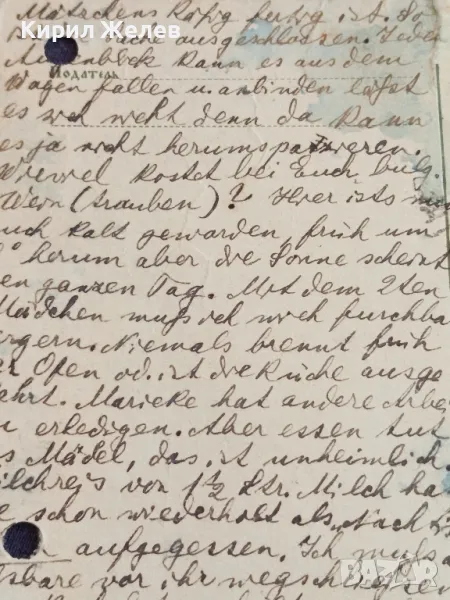 Kiril Želev
Mütschens Käfig fertig ist. So
ausgeschlossen. Jeden
Augenblick kann es aus dem
Податель
Wagen fallen u. anbinden läßt
es sich nicht denn da kann
es ja nicht herumspazieren.
Wieviel kostet bei Euch bulg.
Wein (trauben)? Hier ists nun
auch kalt geworden, früh um
0° herum aber die Sonne scheint
den ganzen Tag. Mit dem 2ten
Mädchen muß ich mich furchtba
ärgern. Niemals brennt früh
er Ofen od. ist die Küche ausge
fahrt. Marieke hat andere Arbei
u erledigen. Aber essen tut
s Mädel, das ist unheimlich.
ilchreis von 1½ Ltr. Milch ha
e schon wiederholt als Nach
aufgegessen. Ich muß a
sbare vor ihr wegschließen
BAZAR